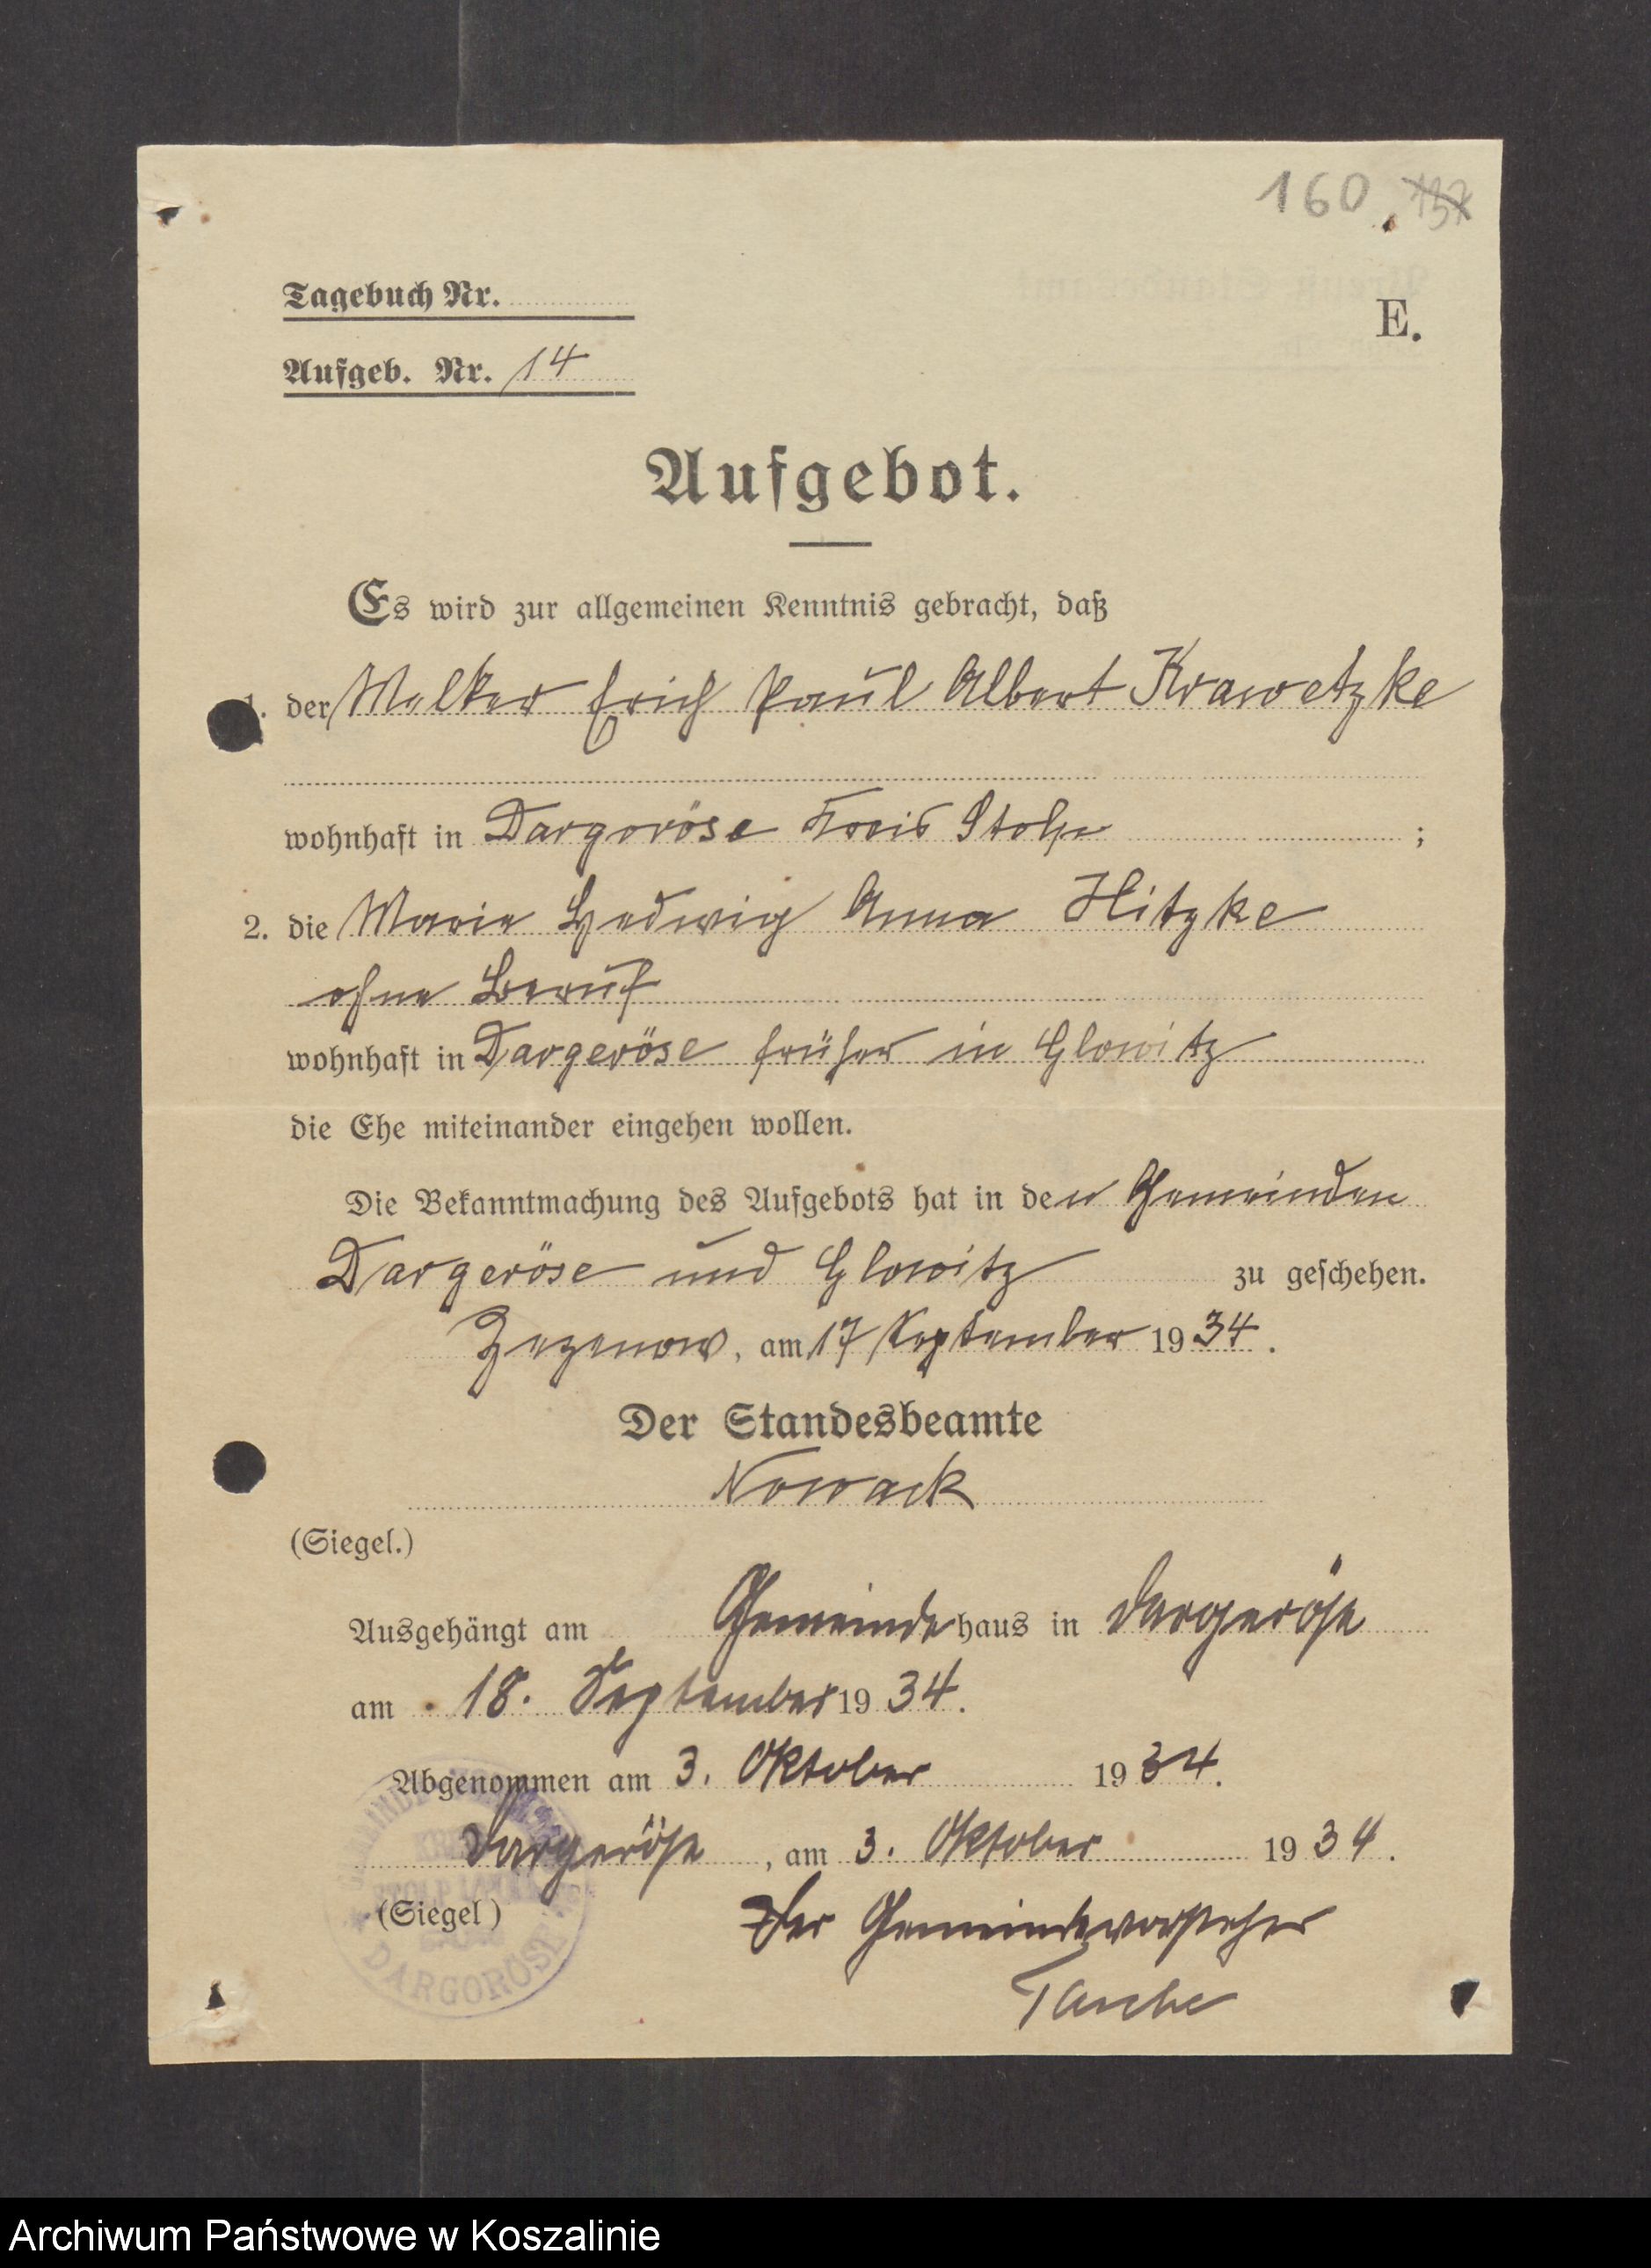 160 137
Tagebuch Nr.
E.
Aufgeb. Nr. 14
Aufgebot.
Es wird zur allgemeinen Kenntnis gebracht, daß
1. der Melker Erich Paul Albert Krawetzke
wohnhaft in Dargoröse Kreis Stolp ;
2. die Marie Hedwig Anna Hitzke
ohne Beruf
wohnhaft in Dargeröse früher in Glowitz
die Ehe miteinander eingehen wollen.
Die Bekanntmachung des Aufgebots hat in den Gemeinden
Dargeröse und Glowitz zu geschehen.
Zezenow, am 17 September 1934.
Der Standesbeamte
Nowack
(Siegel.)
Ausgehängt am Gemeindehaus in Dargeröse
am 18. September 1934.
Abgenommen am 3. Oktober 1934.
Dargeröse, am 3. Oktober 1934.
(Siegel)
DARGORÖSE
Der Gemeindevorsteher
Archiwum Państwowe w Koszalinie